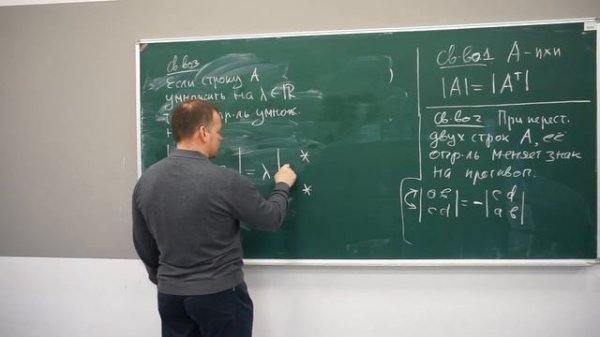 св-во3
Если строку A
умножить на λ∈ℝ
умнож.
= λ |
*
*
св-во1 A - n×n
|A| = |Aᵀ|
св-во2 При перест.
двух строк A, её
опр-ль меняет знак
на противоп.
|a b| = -|c d|
|c d| |a b|